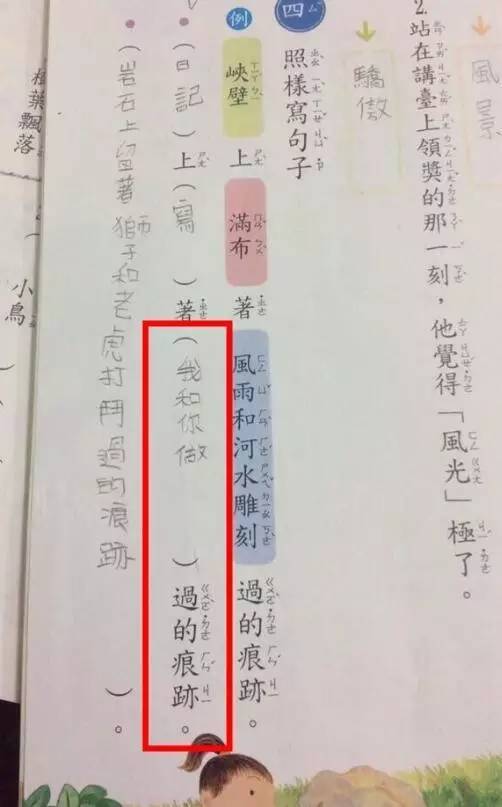 風景
2.站在講臺上領獎的那一刻，他覺得「風光」極了。
驕傲
四 照樣寫句子
例 峽壁上滿布著風雨和河水雕刻過的痕跡。
•（日記）上（寫）著（我和你做）過的痕跡。
•（岩石上留著獅子和老虎打鬥過的痕跡）。
小鳥
葉飄落